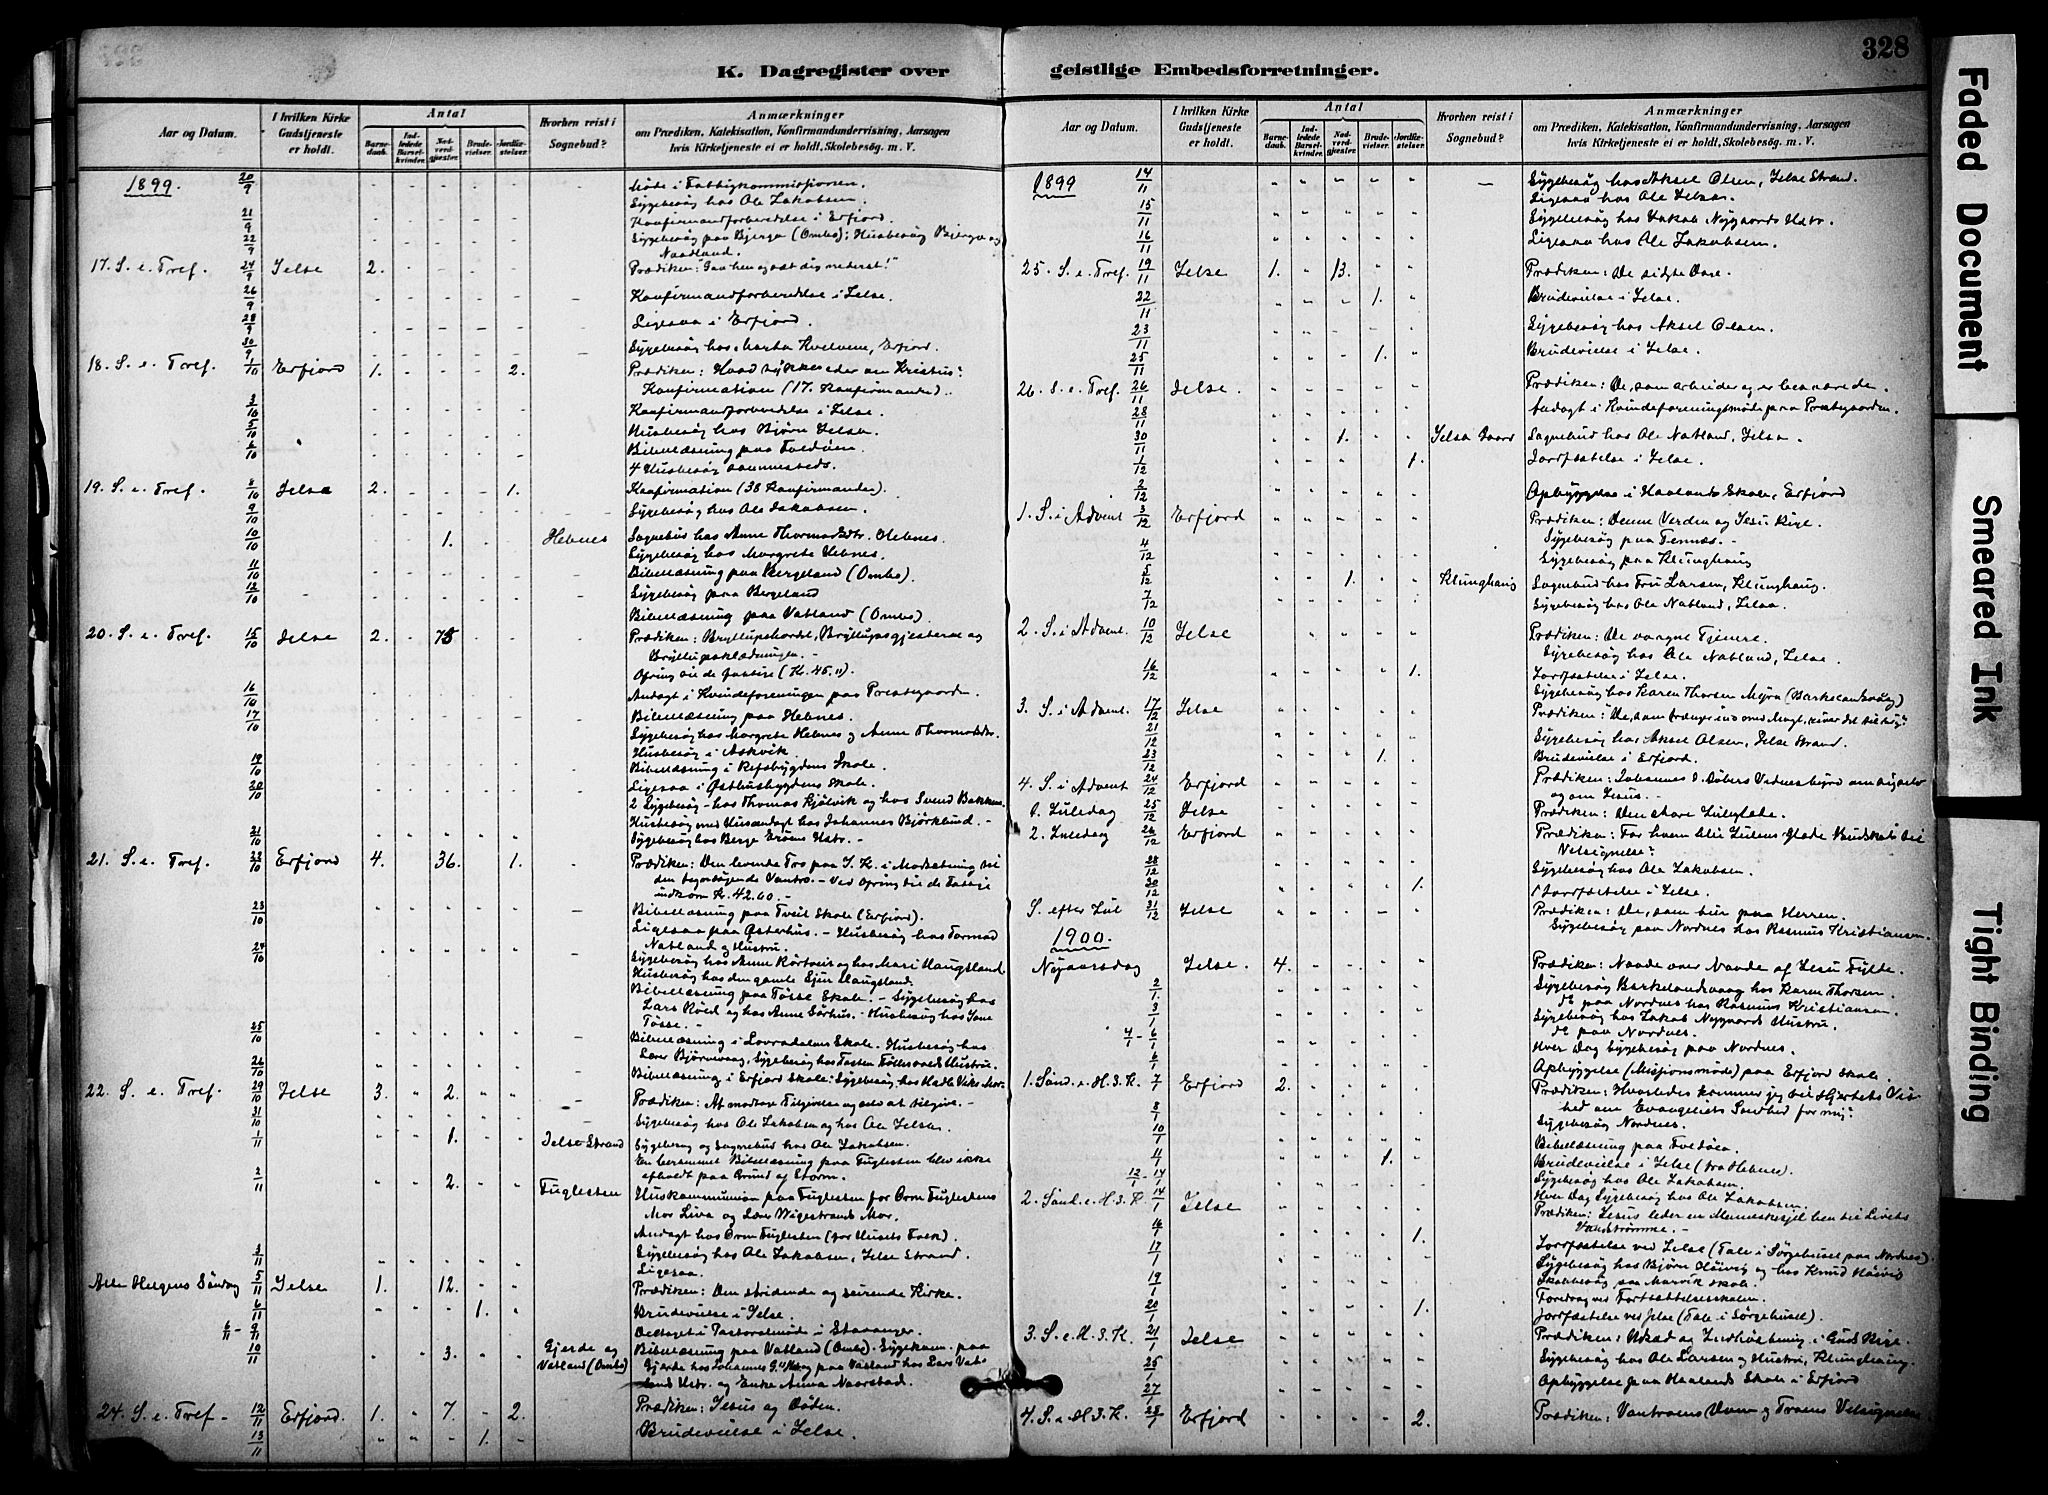 328
K. Dagregister over
geistlige Embedsforretninger.
Aar og Datum.
I hvilken Kirke Gudstjeneste er holdt.
Antal
Barnedaab.
Indledede Barselkvinder.
Nadverdgjester.
Brudevielser.
Jordfæstelser.
Hvorhen reist i Sognebud?
Anmærkninger
om Prædiken, Katekisation, Konfirmandundervisning, Aarsagen
hvis Kirketjeneste ei er holdt, Skolebesøg. m. V.
1899. 20/9 Møde i Fattigkommissionen.
Sygebesøg hos Ole Jakobsen.
21/9 Konfirmandforberedelse i Erfjord.
22/9 Sygebesøg paa Bjerga (Ombo); Husbesøg Bjerga og
Naadland.
17. S. e. Tref. 24/9 Jelse 2. Prædiken: Gaa hen og sæt dig nederst!"
26/9 Konfirmandforberedelse i Jelse.
28/9 Ligesaa i Erfjord.
30/9 Sygebesøg hos Marta Hvelvene, Erfjord.
18. S. e. Tref. 1/10 Erfjord 1. 2. Prædiken: Hvad tykkes eder om Kristus?
Konfirmation (17. Konfirmander).
3/10 Konfirmandforberedelse i Jelse.
5/10 Husbesøg hos Bjørn Jelsa.
6/10 Bibellæsning paa Foldøen.
4 Husbesøg sammesteds.
19. S. e. Tref. 8/10 Jelse 2. 1. Konfirmation (38 Konfirmander).
9/10 Sygebesøg hos Ole Jakobsen.
10/10 1. Hebnes Sognebud hos Anne Thormodsdtr. Hebnes.
Sygebesøg hos Margrete Hebnes.
11/10 Bibellæsning paa Bergeland (Ombo).
12/10 Sygebesøg paa Bergeland
Bibellæsning paa Vatland (Ombo).
20. S. e. Tref. 15/10 Jelse 2. 75 Prædiken: Bryllupsbordet, Bryllupsgjesterne og
Bryllupsklædningen. -
Ofring til de fattige (Kr. 45,11)
16/10 Andagt i Kvindeforeningen paa Præstegaarden.
17/10 Bibellæsning paa Hebnes.
Sygebesøg hos Margrete Hebnes og Anne Thormodsdtr.
Husbesøg i Askvik
19/10 Bibellæsning i Refsbygdens Skole.
20/10 Ligesaa i Østhusbygdens Skole.
2 Sygebesøg - hos Thomas Kjølvik og hos Svend Bakken.
Husbesøg med Husandagt hos Johannes Bjørklund. -
21/10 Sygebesøg hos Berge Erøens Hstr.
21. S. e. Tref. 22/10 Erfjord 4. 36. 1. Prædiken: Den levende Tro paa J. K. i Modsætning til
den begyndende Vantro. - Ved Ofring til de Fattige
indkom Kr. 42.60. -
23/10 Bibellæsning paa Tveit Skole (Erfjord).
Ligesaa paa Østerhus. - Husbesøg hos Tormod
Natland og Hustru.
24/10 Sygebesøg hos Anne Rørtveit og hos Mari Haugsland.
Husbesøg hos den gamle Sjur Haugsland.
Bibellæsning paa Tøsse Skole. - Sygebesøg hos
Lars Roed og hos Anne Sørhus. - Husbesøg hos Jane
Tøsse. -
25/10 Bibellæsning i Lovradalens Skole. Husbesøg hos
Lærer Bjørnevaag, Sygebesøg hos Hustru.
26/10 Bibellæsning i Erfjord Skole; Sygebesøg hos
22. S. e. Tref. 29/10 Jelse 3. 2. Prædiken: At modtage Tilgivelse og selv at tilgive. -
31/10 Sygebesøg hos Ole Jakobsen og hos Ole Jelse.
1/11 1. Jelse Strand Sygebesøg og Sognebud hos Ole Jakobsen.
En berammet Bibellæsning paa Fuglesten blev ikke
afholdt paa Grund af Storm.
2/11 2. Fuglesten Huskommunion paa Fuglesten for Orm Fuglestens
Mor Liva og Lærer Wigestrands Mor.
Andagt hos Orm Fuglesten (for Husets Folk).
3/11 Sygebesøg hos Ole Jakobsen, Jelse Strand.
Ligesaa.
Alle Helgens Søndag 5/11 Jelse 1. 12. Prædiken: Den stridende og seirende Kirke.
6/11 1. Brudevielse i Jelse.
6/11 - 9/11 Deltaget i Pastoralmøde i Stavanger.
10/11 3. Gjerde og Vatland (Ombo) Bibellæsning paa Vatland (Ombo). Sygekom. paa
Gjerde hos Johannes G. og paa Vatland hos Lars Vat-
lands Hstr. og Enke Anna Naarstad.
24. S. e. Tref. 12/11 Erfjord. 1. 7. 2. Prædiken: Jesus og Døden.
13/11 1. Brudevielse i Jelse.
Aar og Datum.
I hvilken Kirke Gudstjeneste er holdt.
Antal
Barnedaab.
Indledede Barselkvinder.
Nadverdgjester.
Brudevielser.
Jordfæstelser.
Hvorhen reist i Sognebud?
Anmærkninger
om Prædiken, Katekisation, Konfirmandundervisning, Aarsagen
hvis Kirketjeneste ei er holdt, Skolebesøg. m. V.
1899 14/11 Sygebesøg hos Aksel Olsen, Jelse Strand.
Ligesaa hos Ole Jelsa.
15/11 Sygebesøg hos Jakob Nygaards Hstr.
16/11 Ligesaa hos Ole Jakobsen.
25. S. e. Tref. 19/11 Jelse 1. 13. Prædiken: De sidste Dage.
22/11 1. Brudevielse i Jelse.
23/11 Sygebesøg hos Aksel Olsen.
25/11 1. Brudevielse i Jelse.
26. S. e. Tref. 26/11 Jelse. Prædiken: De, som arbeider og er besværede.
28/11 Andagt i Kvindeforeningsmøde paa Præstegaarden.
30/11 1. Jelsa Sognebud hos Ole Natland, Jelsa.
1/12 1. Jordfæstelse i Jelse.
2/12 Opbyggelse i Haalands Skole, Erfjord
1. S. i Advent 3/12 Erfjord Prædiken: Denne Verden og Jesu Rige.
4/12 Sygebesøg paa Tennæs. -
Sygebesøg paa Klunghaug
5/12 1. Klunghaug Sognebud hos Fru Larsen, Klunghaug.
7/12 Sygebesøg hos Ole Natland, Jelsa.
2. S. i Advent. 10/12 Jelse Prædiken: De vaagne Tjenere.
Sygebesøg hos Ole Natland, Jelse.
16/12 1. Jordfæstelse i Jelse.
Sygebesøg hos Karen Thorsen Myra (Barkelandsvaag)
3. S. i Advent. 17/12 Jelse Prædiken: "De, som trænger ind med Magt, river det til sig."
21/12 Sygebesøg hos Aksel Olsen, Jelse Strand.
23/12 1. Brudevielse i Erfjord.
4. S. i Advent 24/12 Erfjord Prædiken: Johannes d. Døbers Vidnesbyrd om sig selv
og om Jesus. -
1. Juledag 25/12 Jelse Prædiken: Den store Juleglæde.
2. Juledag 26/12 Erfjord Prædiken: For hvem blir Julens glade Budskab til
Velsignelse?
28/12 Sygebesøg hos Ole Jakobsen.
30/12 1. 1 Jordfæstelse i Jelse.
S. efter Jul 31/12 Jelse Prædiken: De, som bier paa Herren.
Sygebesøg paa Nordnes hos Rasmus Kristiansen.
1900.
Nytaarsdag Jelse. 4. Prædiken: Naade over Naade af Jesu Fylde.
2/1. Sygebesøg Barkelandsvaag hos Karen Thorsen.
do paa Nordnes hos Rasmus Kristiansen.
3/1 Sygebesøg hos Jakob Nygaards Hustru.
do paa Nordnes.
4/1 - 6/1 Hver Dag Sygebesøg paa Nordnes.
6/1 Opbyggelse (Misjonsmøde) paa Erfjord Skole.
1. Sønd. e. H. 3. K. 7/1 Erfjord 2. Prædiken: Hvorledes kommer jeg til Hjertets Vis-
hed om Evangeliets Sandhed for mig?
8/1 Sygebesøg Nordnes.
10/1 Bibellæsning paa Foldøen.
11/1 1. Brudevielse i Jelse (fra Hebnes).
Sygebesøg hos Ole Jakobsen.
12/1 - 14/1 Hver Dag Sygebesøg hos Ole Jakobsen.
2. Sønd. e. H. 3. K. 14/1 Jelse Prædiken: Jesus leder en Menneskesjel hen til Livets
Vandstrømme. -
16/1 1. Jordfæstelse ved Jelse (Tale i Sørgehuset paa Nordnes).
17/1 Sygebesøg hos Bjørn Høivig og hos Knud Høivig
19/1 Skolebesøg paa Marvik Skole.
Foredrag ved Fortsættelsesskolen.
20/1 1. Jordfæstelse ved Jelse (Tale i Sørgehuset).
3. S. e. H. 3. K. 21/1 Jelse Prædiken: Udkad og Indhøstning i Guds Rige.
25/1 Sygebesøg hos Ole Larsen og Hustru, Klunghaug.
27/1 Opbyggelse paa Haalands Skole i Erfjord
4. S. e. H. 3. K. 28/1 Erfjord 2. Prædiken: Vantroens Dom og Troens Velsignelse.
Faded Document
Smeared Ink
Tight Binding